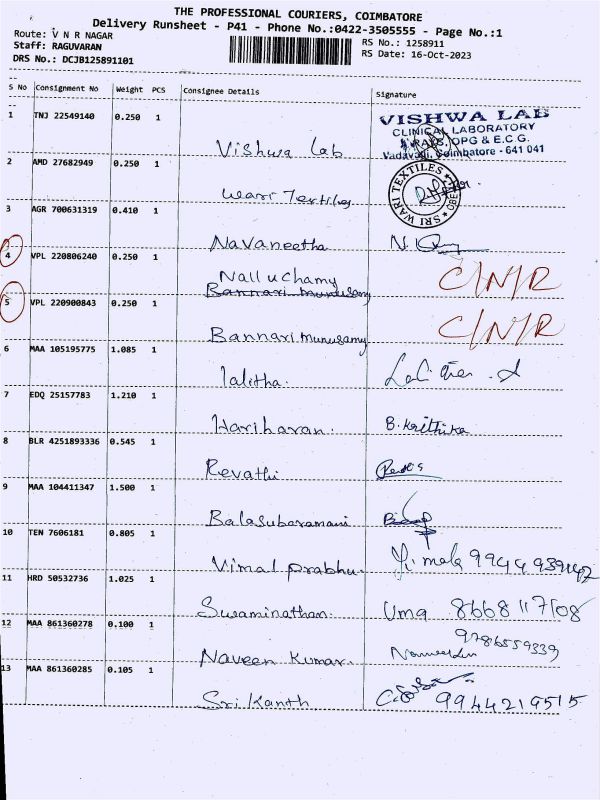 THE PROFESSIONAL COURIERS, COIMBATORE
Delivery Runsheet - P41 - Phone No.:0422-3505555 - Page No.:1
Route: V N R NAGAR
Staff: RAGUVARAN
DRS No.: DCJB125891101
RS No.: 1258911
RS Date: 16-Oct-2023
S No Consignment No Weight PCS Consignee Details Signature
1 TNJ 22549140 0.250 1
Vishwa Lab
VISHWA LAB
CLINICAL LABORATORY
X-RAYS, OPG & E.C.G.
Vadavalli, Coimbatore - 641 041
2 AMD 27682949 0.250 1
Wari Textiles
SRI WARI TEXTILES CBE
3 AGR 700631319 0.410 1
Navaneetha
4 VPL 220806240 0.250 1
Nalluchamy C/N/R
Bannari Munusamy
5 VPL 220900843 0.250 1
Bannari munusamy C/N/R
6 MAA 105195775 1.085 1
Lalitha.
7 EDQ 25157783 1.210 1
Hariharan. B. Krithika
8 BLR 4251893336 0.545 1
Revathi
9 MAA 104411347 1.500 1
Balasubaramani
10 TEN 7606181 0.805 1
Vimal prabhu.
11 HRD 50532736 1.025 1
Swaminathan. Uma 8668117108
12 MAA 861360278 0.100 1
Naveen Kumar. 9786559339
13 MAA 861360285 0.105 1
Srikanth 9944219515